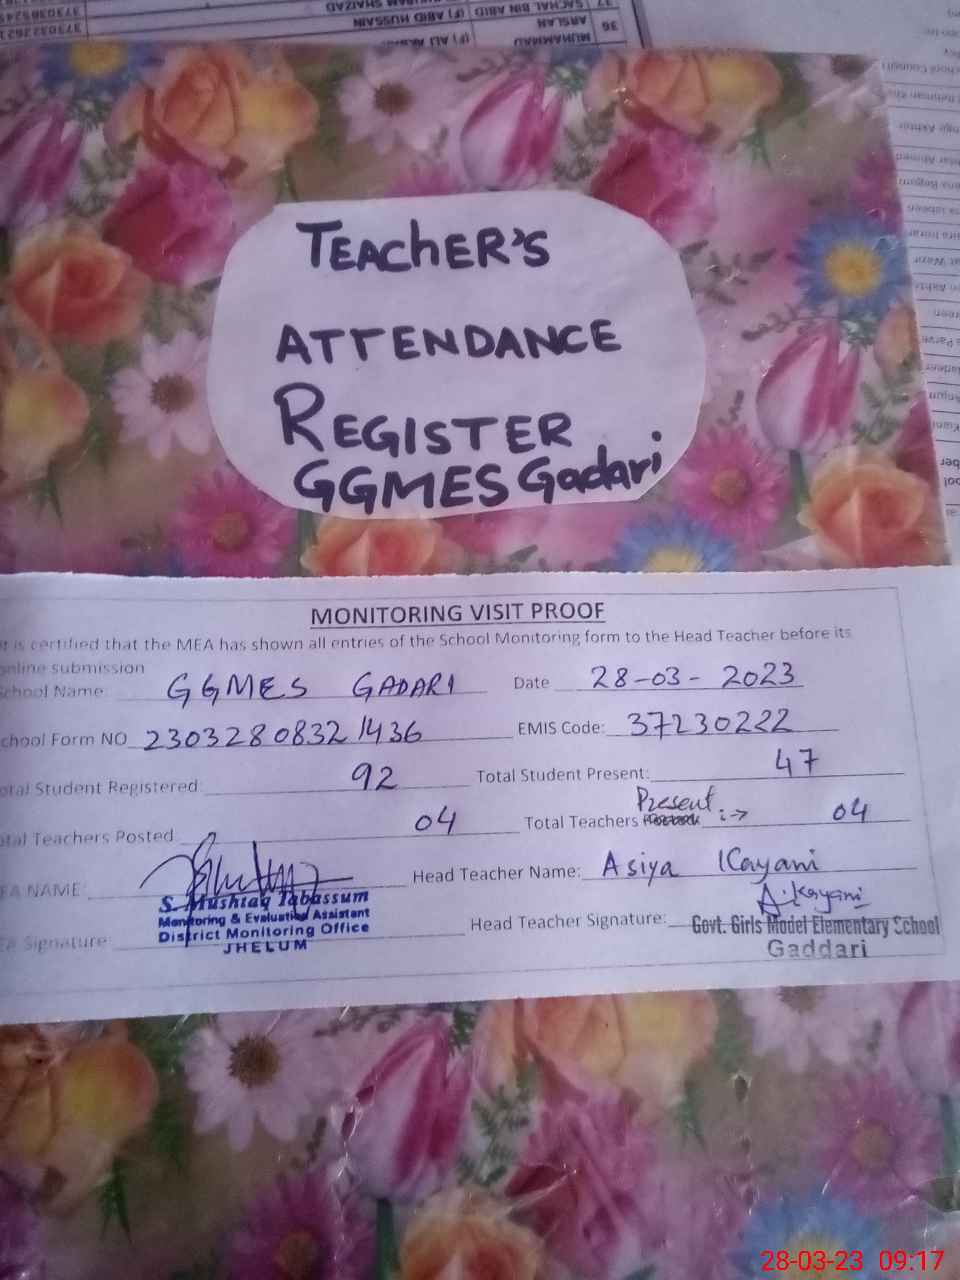 TEACHER'S
ATTENDANCE
REGISTER
GGMES Gadari
MONITORING VISIT PROOF
t is certified that the MEA has shown all entries of the School Monitoring form to the Head Teacher before its
online submission
School Name: GGMES GADARI Date 28-03-2023
chool Form NO 23032808321436 EMIS Code: 37230222
otal Student Registered: 92 Total Student Present: 47
otal Teachers Posted 04 Total Teachers Present :-> 04
EA NAME: Head Teacher Name: Asiya Kayani
S. Mushtaq Tabassum
Monitoring & Evaluation Assistant
District Monitoring Office
JHELUM
EA Signature: Head Teacher Signature: A.Kayani
Govt. Girls Model Elementary School
Gaddari
28-03-23 09:17